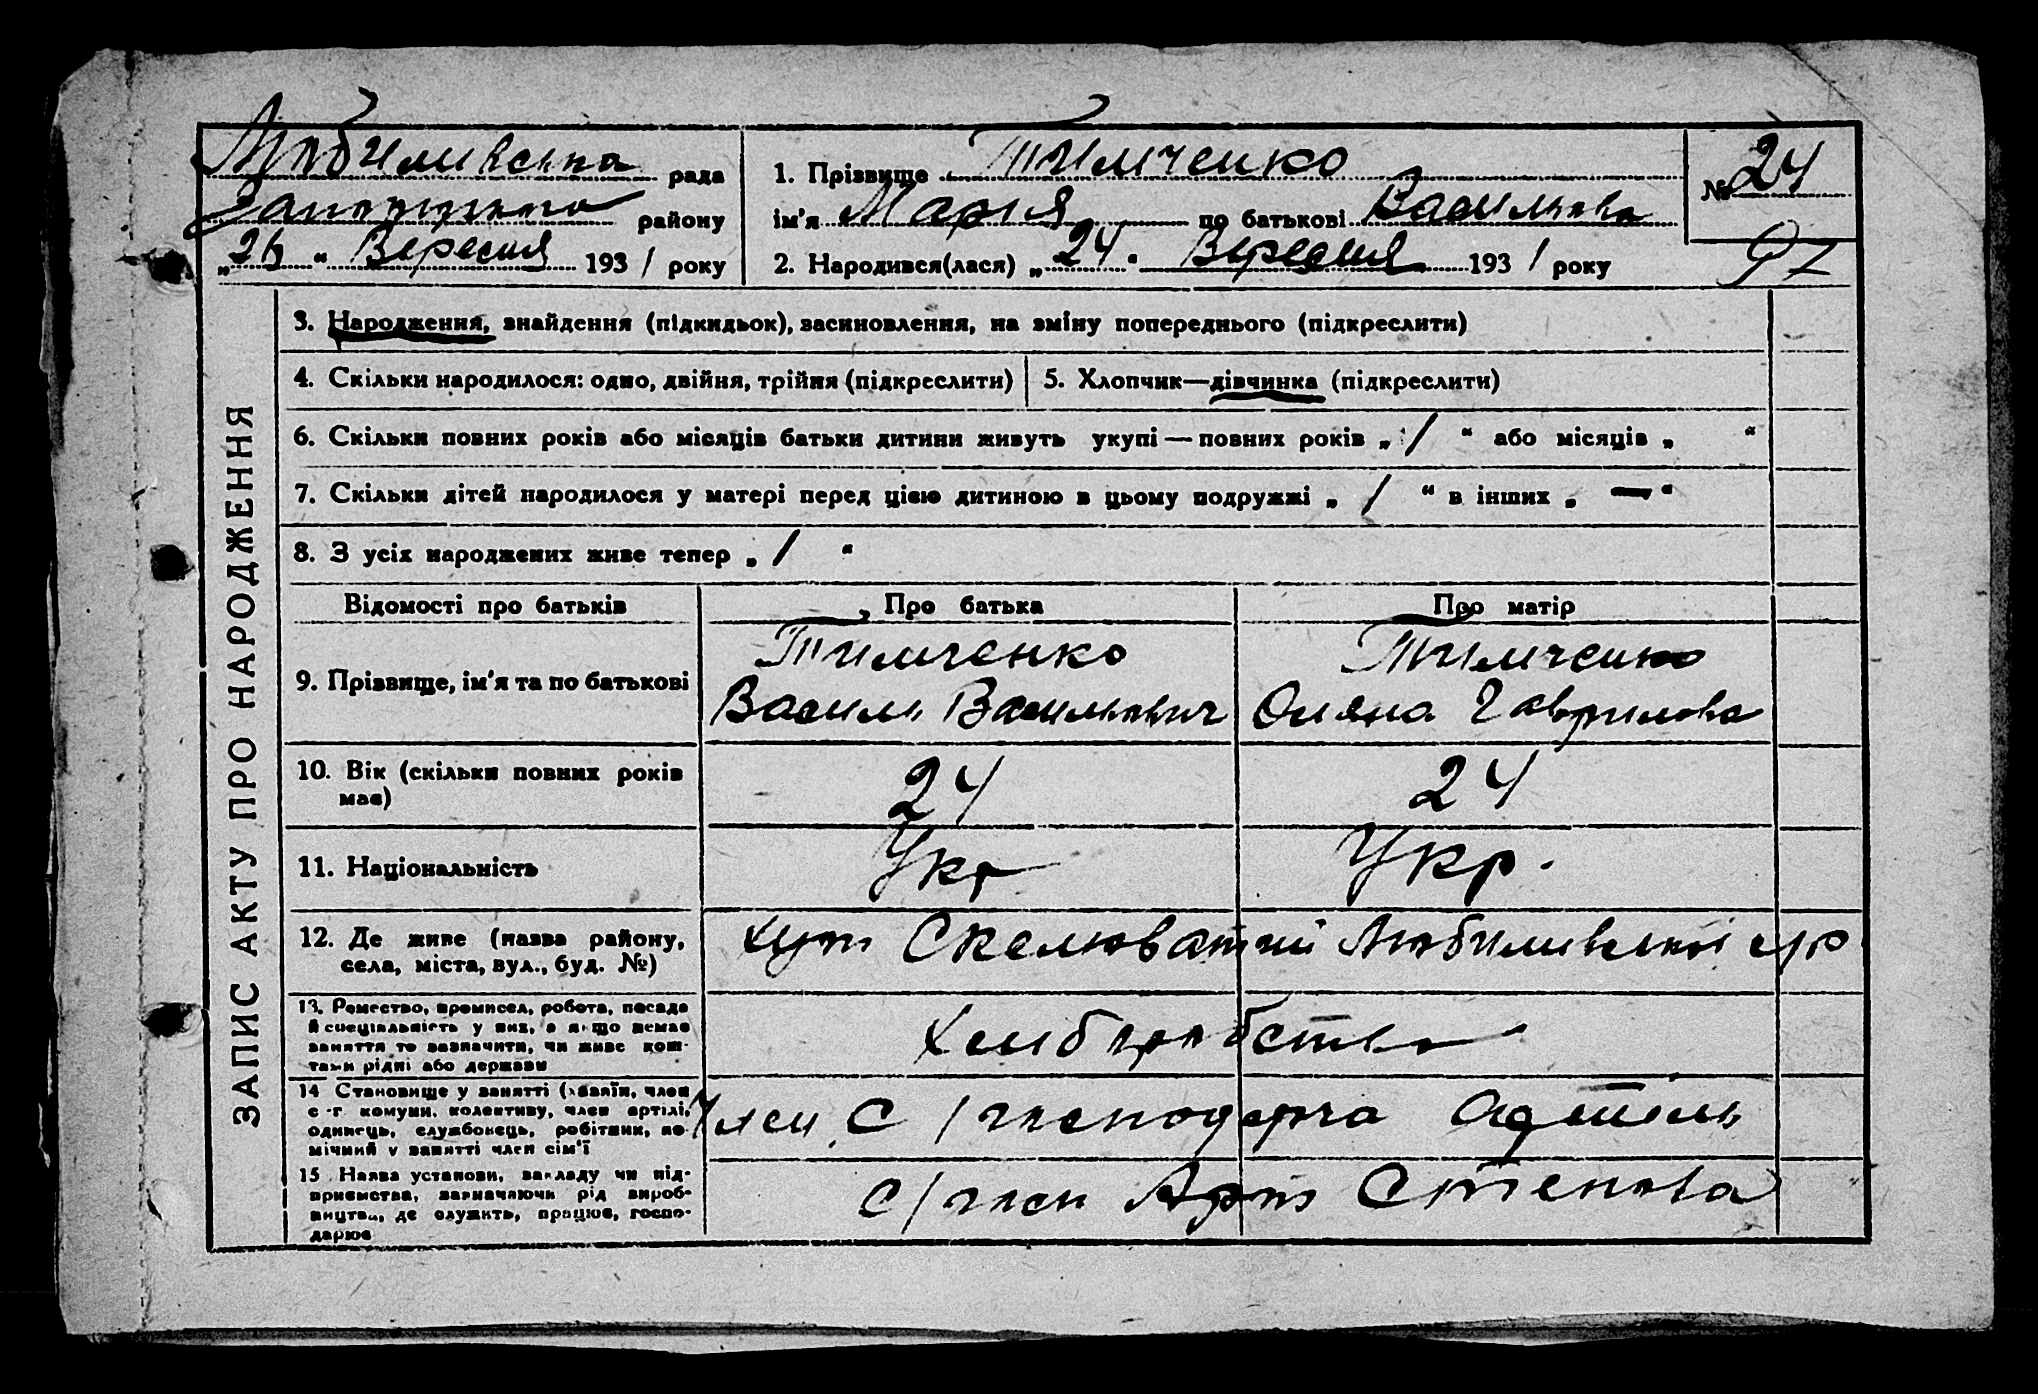 Любимивська рада
району
„26“ Вересня 1931 року
1. Прізвище Тимченко
ім'я Марія по батькові Васильова
2. Народився(лася) „24“ Вересня 1931 року
№ 24
97
ЗАПИС АКТУ ПРО НАРОДЖЕННЯ
3. Народження, знайдення (підкидьок), засиновлення, на зміну попереднього (підкреслити)
4. Скільки народилося: одно, двійня, трійня (підкреслити)
5. Хлопчик—дівчинка (підкреслити)
6. Скільки повних років або місяців батьки дитини живуть укупі — повних років „1“ або місяців „ “
7. Скільки дітей народилося у матері перед цією дитиною в цьому подружжі „1“ в інших „—“
8. З усіх народжених живе тепер „1“
Відомості про батьків Про батька Про матір
9. Прізвище, ім'я та по батькові
Тимченко
Василь Васильович
Тимченко
Оляна Гаврилова
10. Вік (скільки повних років
має)
24 24
11. Національність Укр Укр.
12. Де живе (назва району,
села, міста, вул., буд. №)
хут Скелюватий Любимивської с/р
13. Ремество, промисел, робота, посада
й спеціяльність у них, а якщо немає
заняття то зазначити, чи живе кош-
тами рідні або держави
Хлиборобство
14 Становище у занятті (хазяїн, член
с.-г. комуни, колективу, член артілі,
одинець, службовець, робітник, по-
мічний у занятті член сім'ї
Член С/господарча Артіль
15 Назва установи, закладу чи під-
приємства, зазначаючи рід вироб-
ництва, де служить, працює, госпо-
дарює
Арт Степова